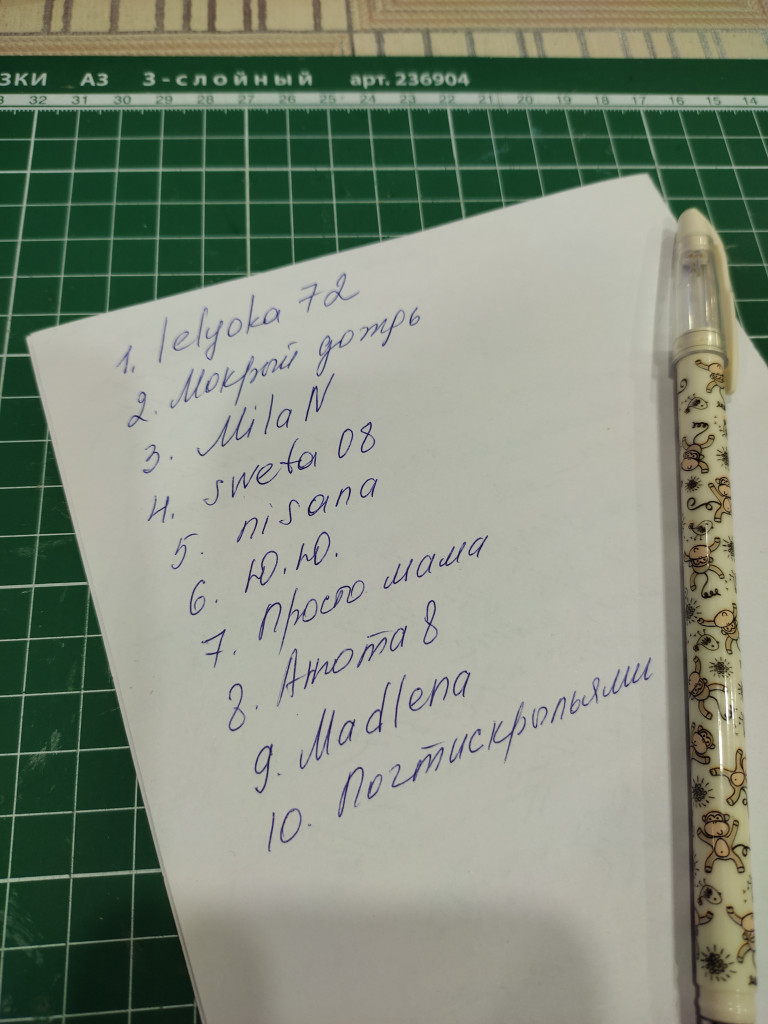 ЗКИ А3 3-слойный арт. 236904
32 31 30 29 28 27 26 25 24 23 22 21 20 19 18 17 16 15 14
1. lelyoka 72
2. Мокрый дождь
3. Mila N
4. sweta 08
5. nisana
6. Ю.Ю.
7. Просто мама
8. Анюта 8
9. Madlena
10. Почтискрыльями